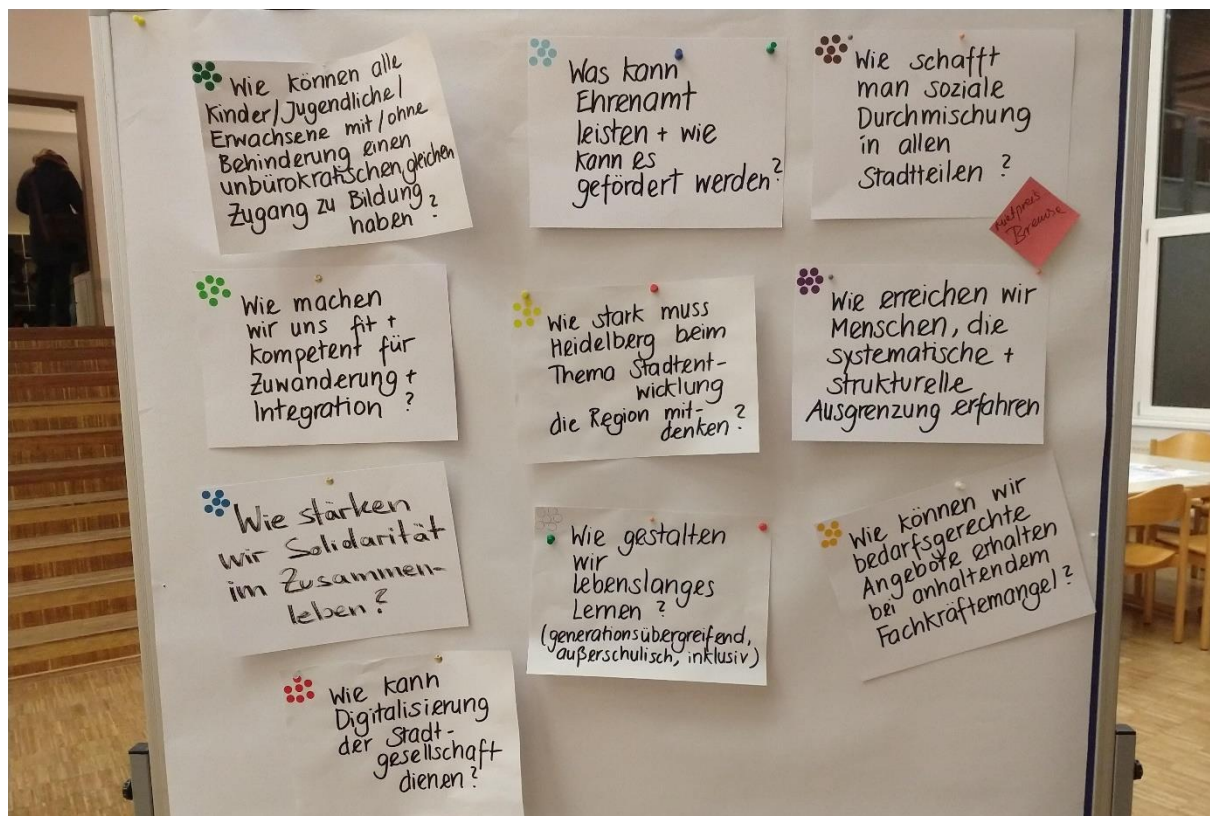 Wie können alle
Kinder/Jugendliche/
Erwachsene mit/ohne
Behinderung einen
unbürokratischen, gleichen
Zugang zu Bildung
haben?
Was kann
Ehrenamt
leisten + wie
kann es
gefördert werden?
Wie schafft
man soziale
Durchmischung
in allen
Stadtteilen?
Mietpreis
Bremse
Wie machen
wir uns fit +
kompetent für
Zuwanderung +
Integration?
Wie stark muss
Heidelberg beim
Thema Stadtent-
wicklung
die Region mit-
denken?
Wie erreichen wir
Menschen, die
systematische +
strukturelle
Ausgrenzung erfahren
Wie stärken
wir Solidarität
im Zusammen-
leben?
Wie gestalten
wir
lebenslanges
Lernen?
(generationsübergreifend,
außerschulisch, inklusiv)
Wie können wir
bedarfsgerechte
Angebote erhalten
bei anhaltendem
Fachkräftemangel?
Wie kann
Digitalisierung
der Stadt-
gesellschaft
dienen?